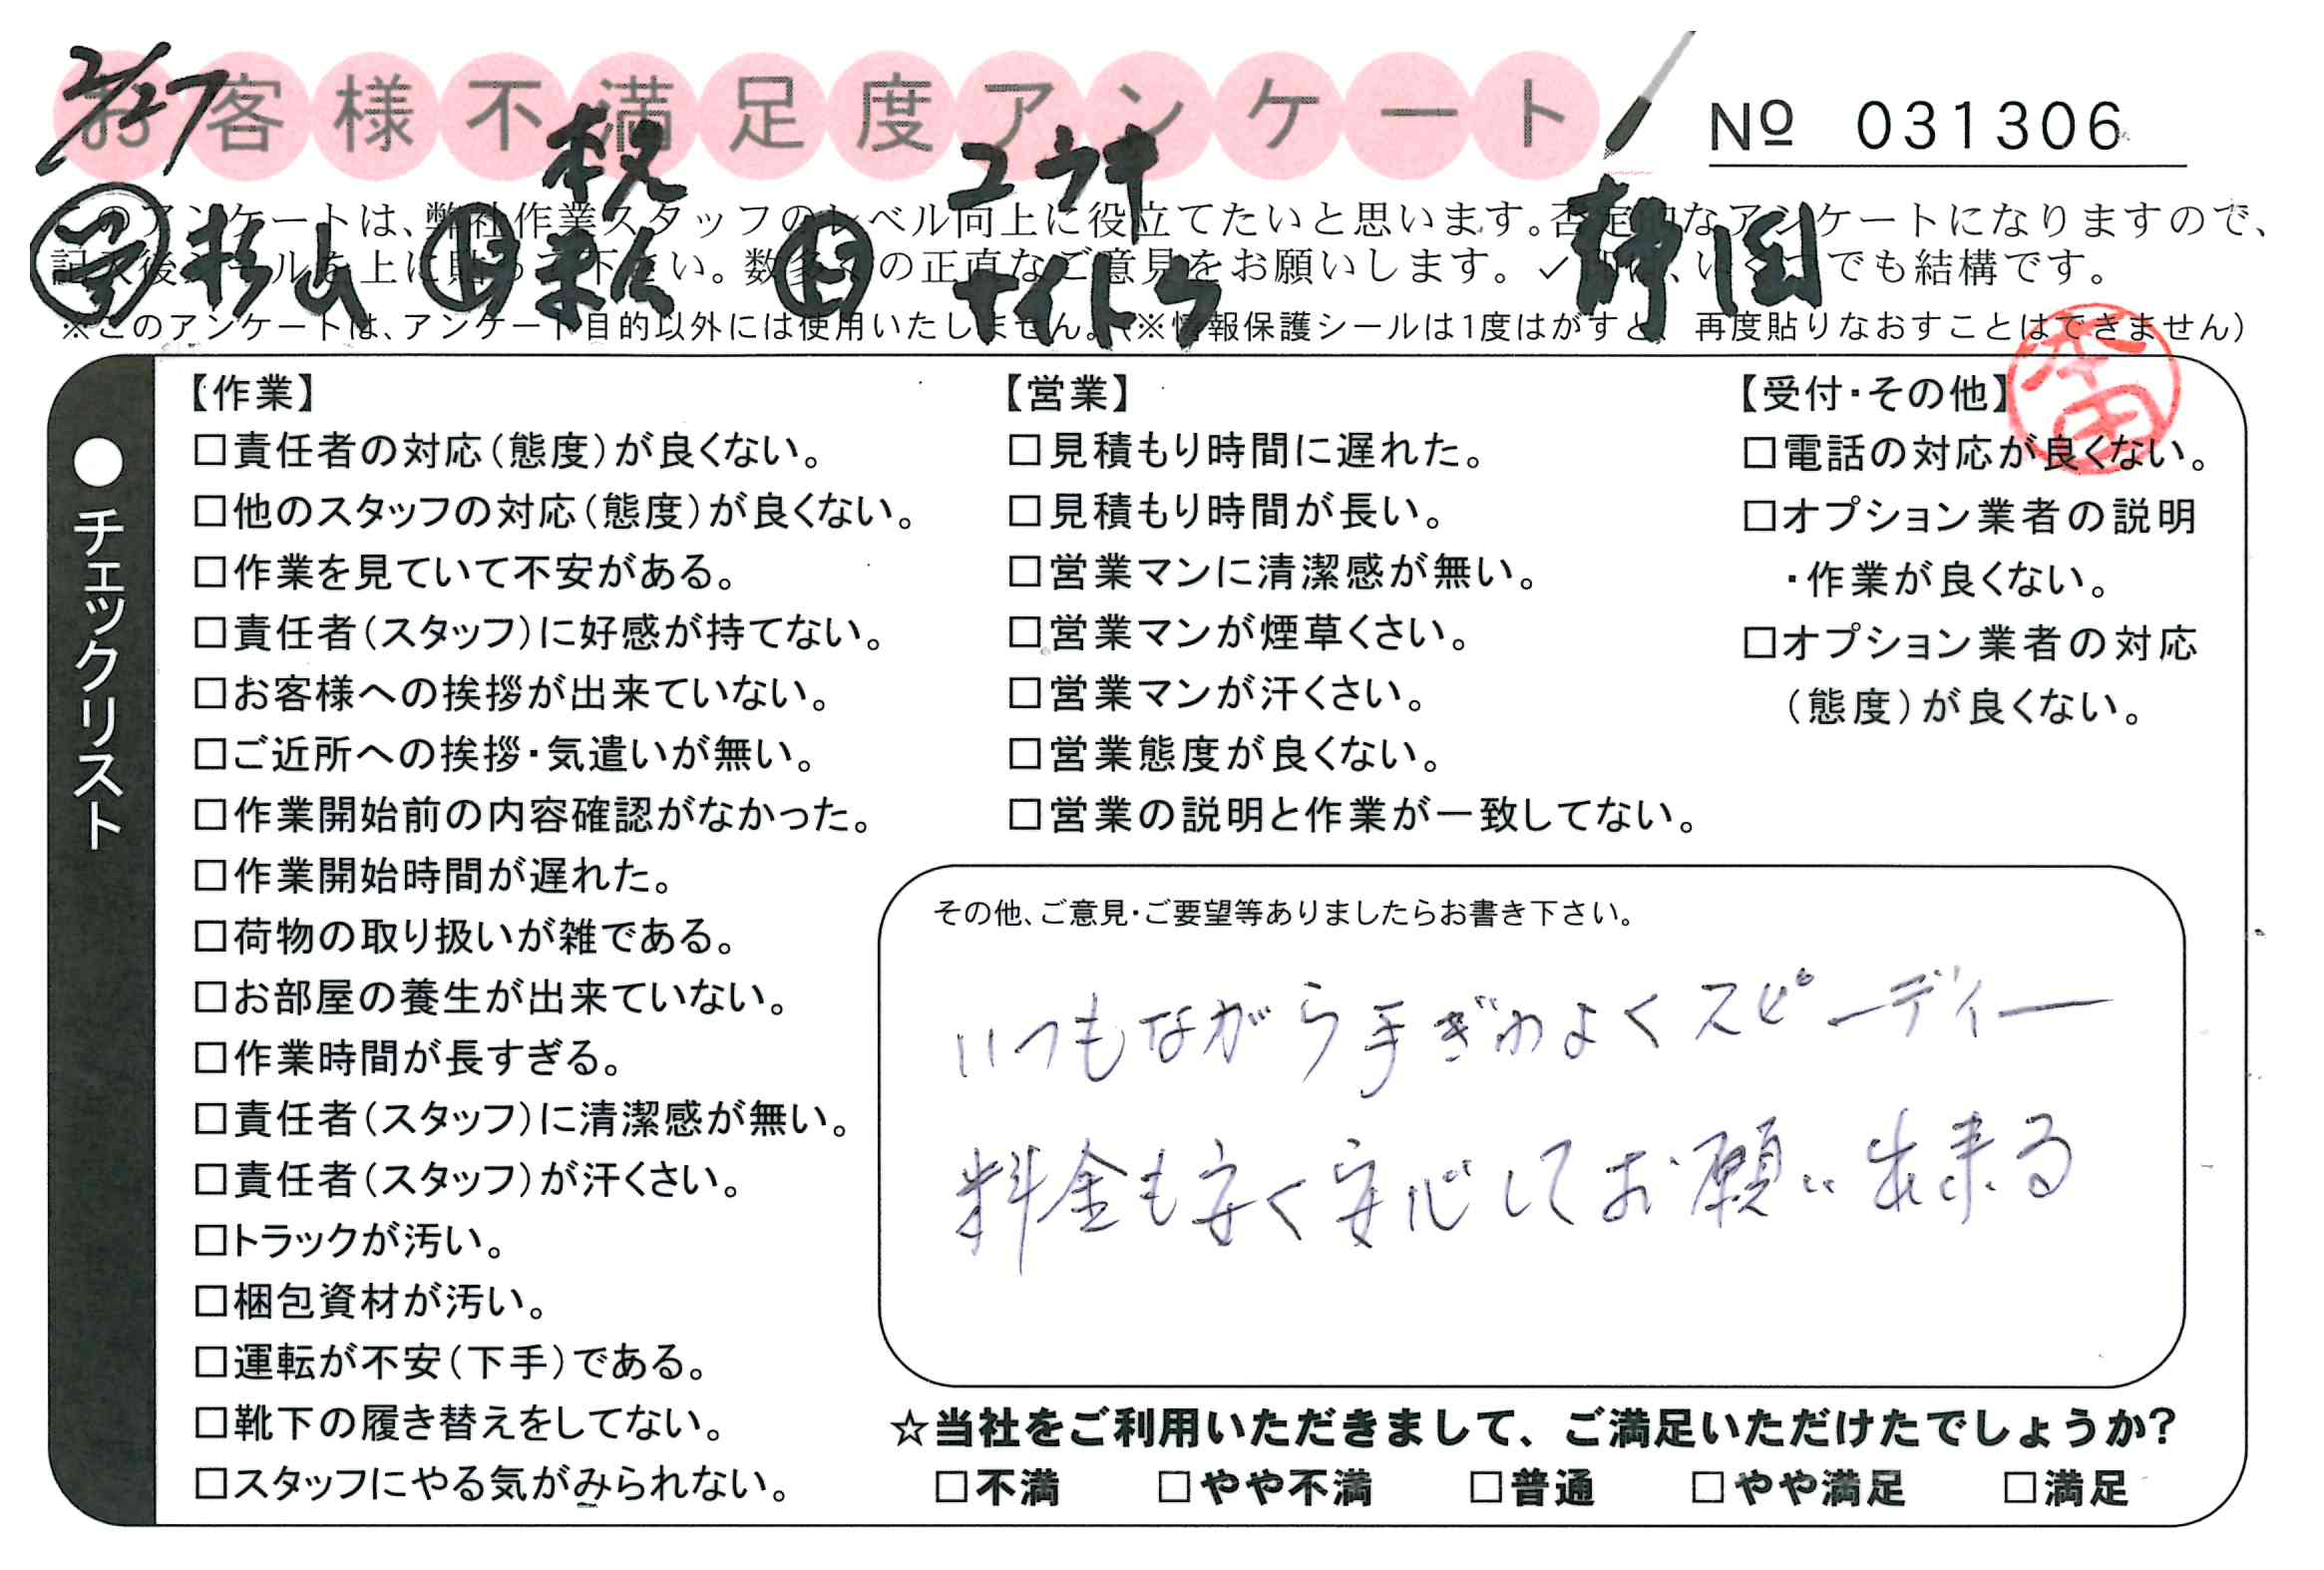 2/27
お客様不満足度アンケート
№ 031306
杉山
ユウキ
ナイトウ
静岡
このアンケートは、弊社作業スタッフのレベル向上に役立てたいと思います。否定的なアンケートになりますので、
記入後シールを上に貼って下さい。数多くの正直なご意見をお願いします。✓印は、いくつでも結構です。
※このアンケートは、アンケート目的以外には使用いたしません。（※情報保護シールは1度はがすと、再度貼りなおすことはできません）
●チェックリスト
【作業】
□責任者の対応（態度）が良くない。
□他のスタッフの対応（態度）が良くない。
□作業を見ていて不安がある。
□責任者（スタッフ）に好感が持てない。
□お客様への挨拶が出来ていない。
□ご近所への挨拶・気遣いが無い。
□作業開始前の内容確認がなかった。
□作業開始時間が遅れた。
□荷物の取り扱いが雑である。
□お部屋の養生が出来ていない。
□作業時間が長すぎる。
□責任者（スタッフ）に清潔感が無い。
□責任者（スタッフ）が汗くさい。
□トラックが汚い。
□梱包資材が汚い。
□運転が不安（下手）である。
□靴下の履き替えをしてない。
□スタッフにやる気がみられない。
【営業】
□見積もり時間に遅れた。
□見積もり時間が長い。
□営業マンに清潔感が無い。
□営業マンが煙草くさい。
□営業マンが汗くさい。
□営業態度が良くない。
□営業の説明と作業が一致してない。
【受付・その他】
□電話の対応が良くない。
□オプション業者の説明
・作業が良くない。
□オプション業者の対応
（態度）が良くない。
その他、ご意見・ご要望等ありましたらお書き下さい。
いつもながら手ぎわよくスピーディー
料金も安く安心してお願い出来る
☆当社をご利用いただきまして、ご満足いただけたでしょうか？
□不満 □やや不満 □普通 □やや満足 □満足